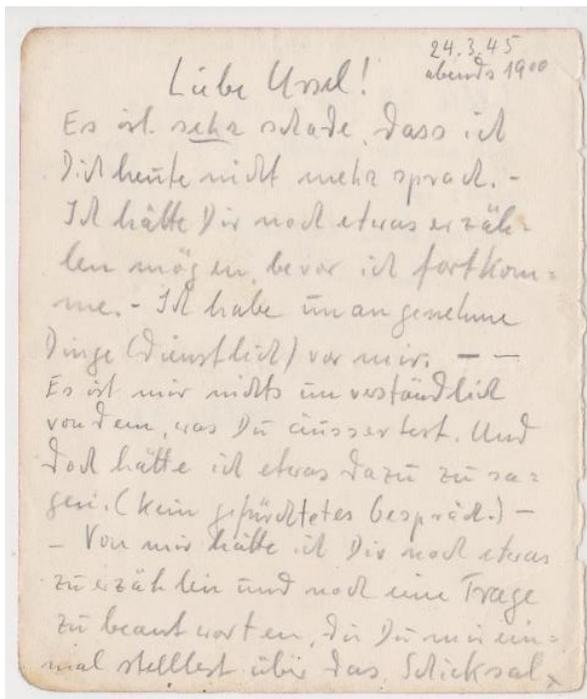 24.3.45
abends 19⁰⁰
Liebe Ursel!
Es ist sehr schade, dass ich
Dich heute nicht mehr sprach. -
Ich hätte Dir noch etwas erzäh-
len mögen, bevor ich fortkom-
me. - Ich habe unangenehme
Dinge (dienstlich) vor mir. - -
Es ist mir nichts unverständlich
von dem, was Du äussertest. Und
doch hätte ich etwas dazu zu sa-
gen. (Kein gefürchtetes Gespräch.) -
- Von mir hätte ich Dir noch etwas
zu erzählen und noch eine Frage
zu beantworten, die Du mir ein-
mal stelltest über das Schicksal